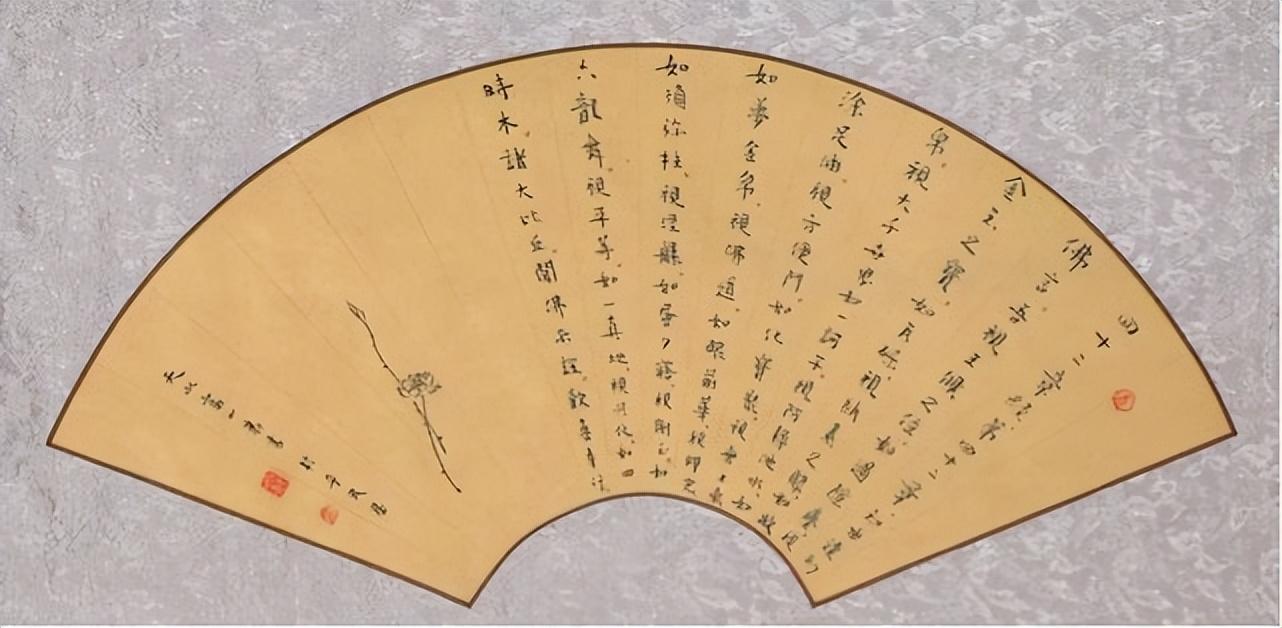 四十二章經第四十二章
佛言吾視王侯之位如過隙塵視
金玉之寶如瓦礫視紈素之服如敝
帛視大千世界如一訶子視阿耨池水如
塗足油視方便門如化寶聚視無上乘
如夢金帛視佛道如眼前華視禪定
如須彌柱視涅槃如晝夕寤視倒正如
六龍舞視平等如一真地視興化如四
時木諸大比丘聞佛示經歡喜奉行